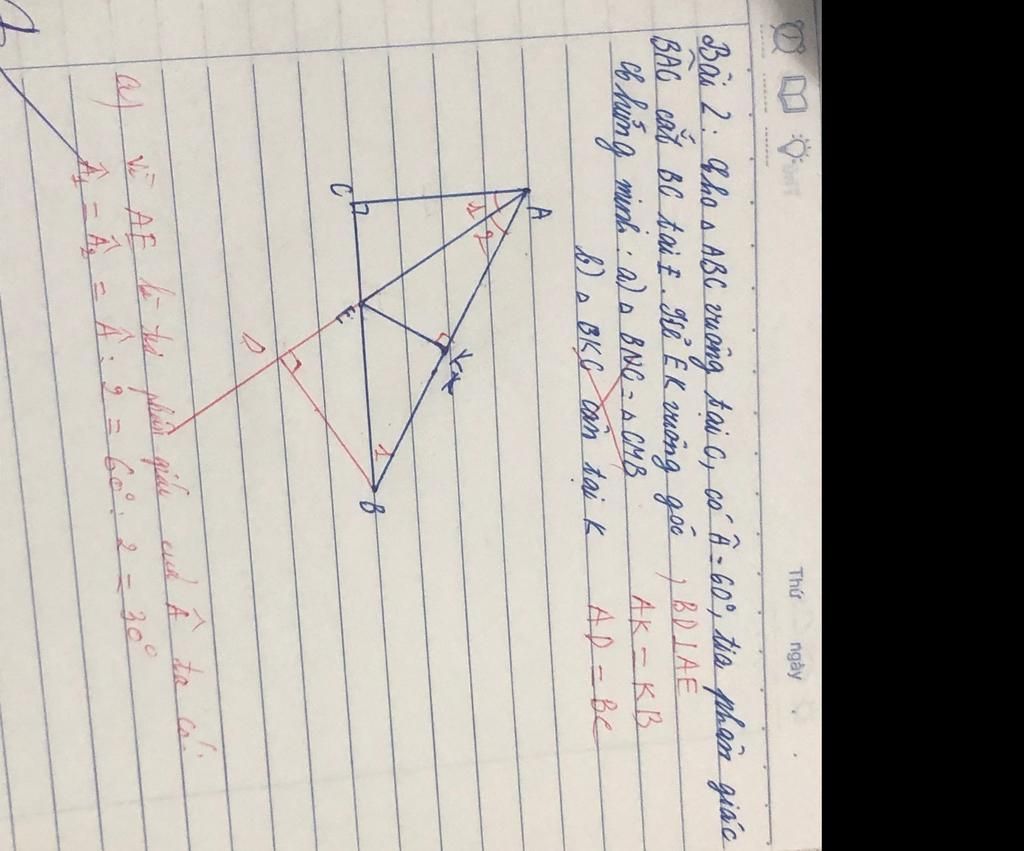 Thứ ngày
Bài 2: Cho △ ABC vuông tại C, có Â = 60°, tia phân giác
BAC cắt BC tại E. Kẻ EK vuông góc , BD⊥AE
chứng minh: a) △ BNC = △ CMB AK = KB
b) △ BKC cân tại K AD = BC
A
1 2
C
K
E
D
1
B
a) Vì AE là tia phân giác của Â ta có:
Â1 = Â2 = Â : 2 = 60° : 2 = 30°